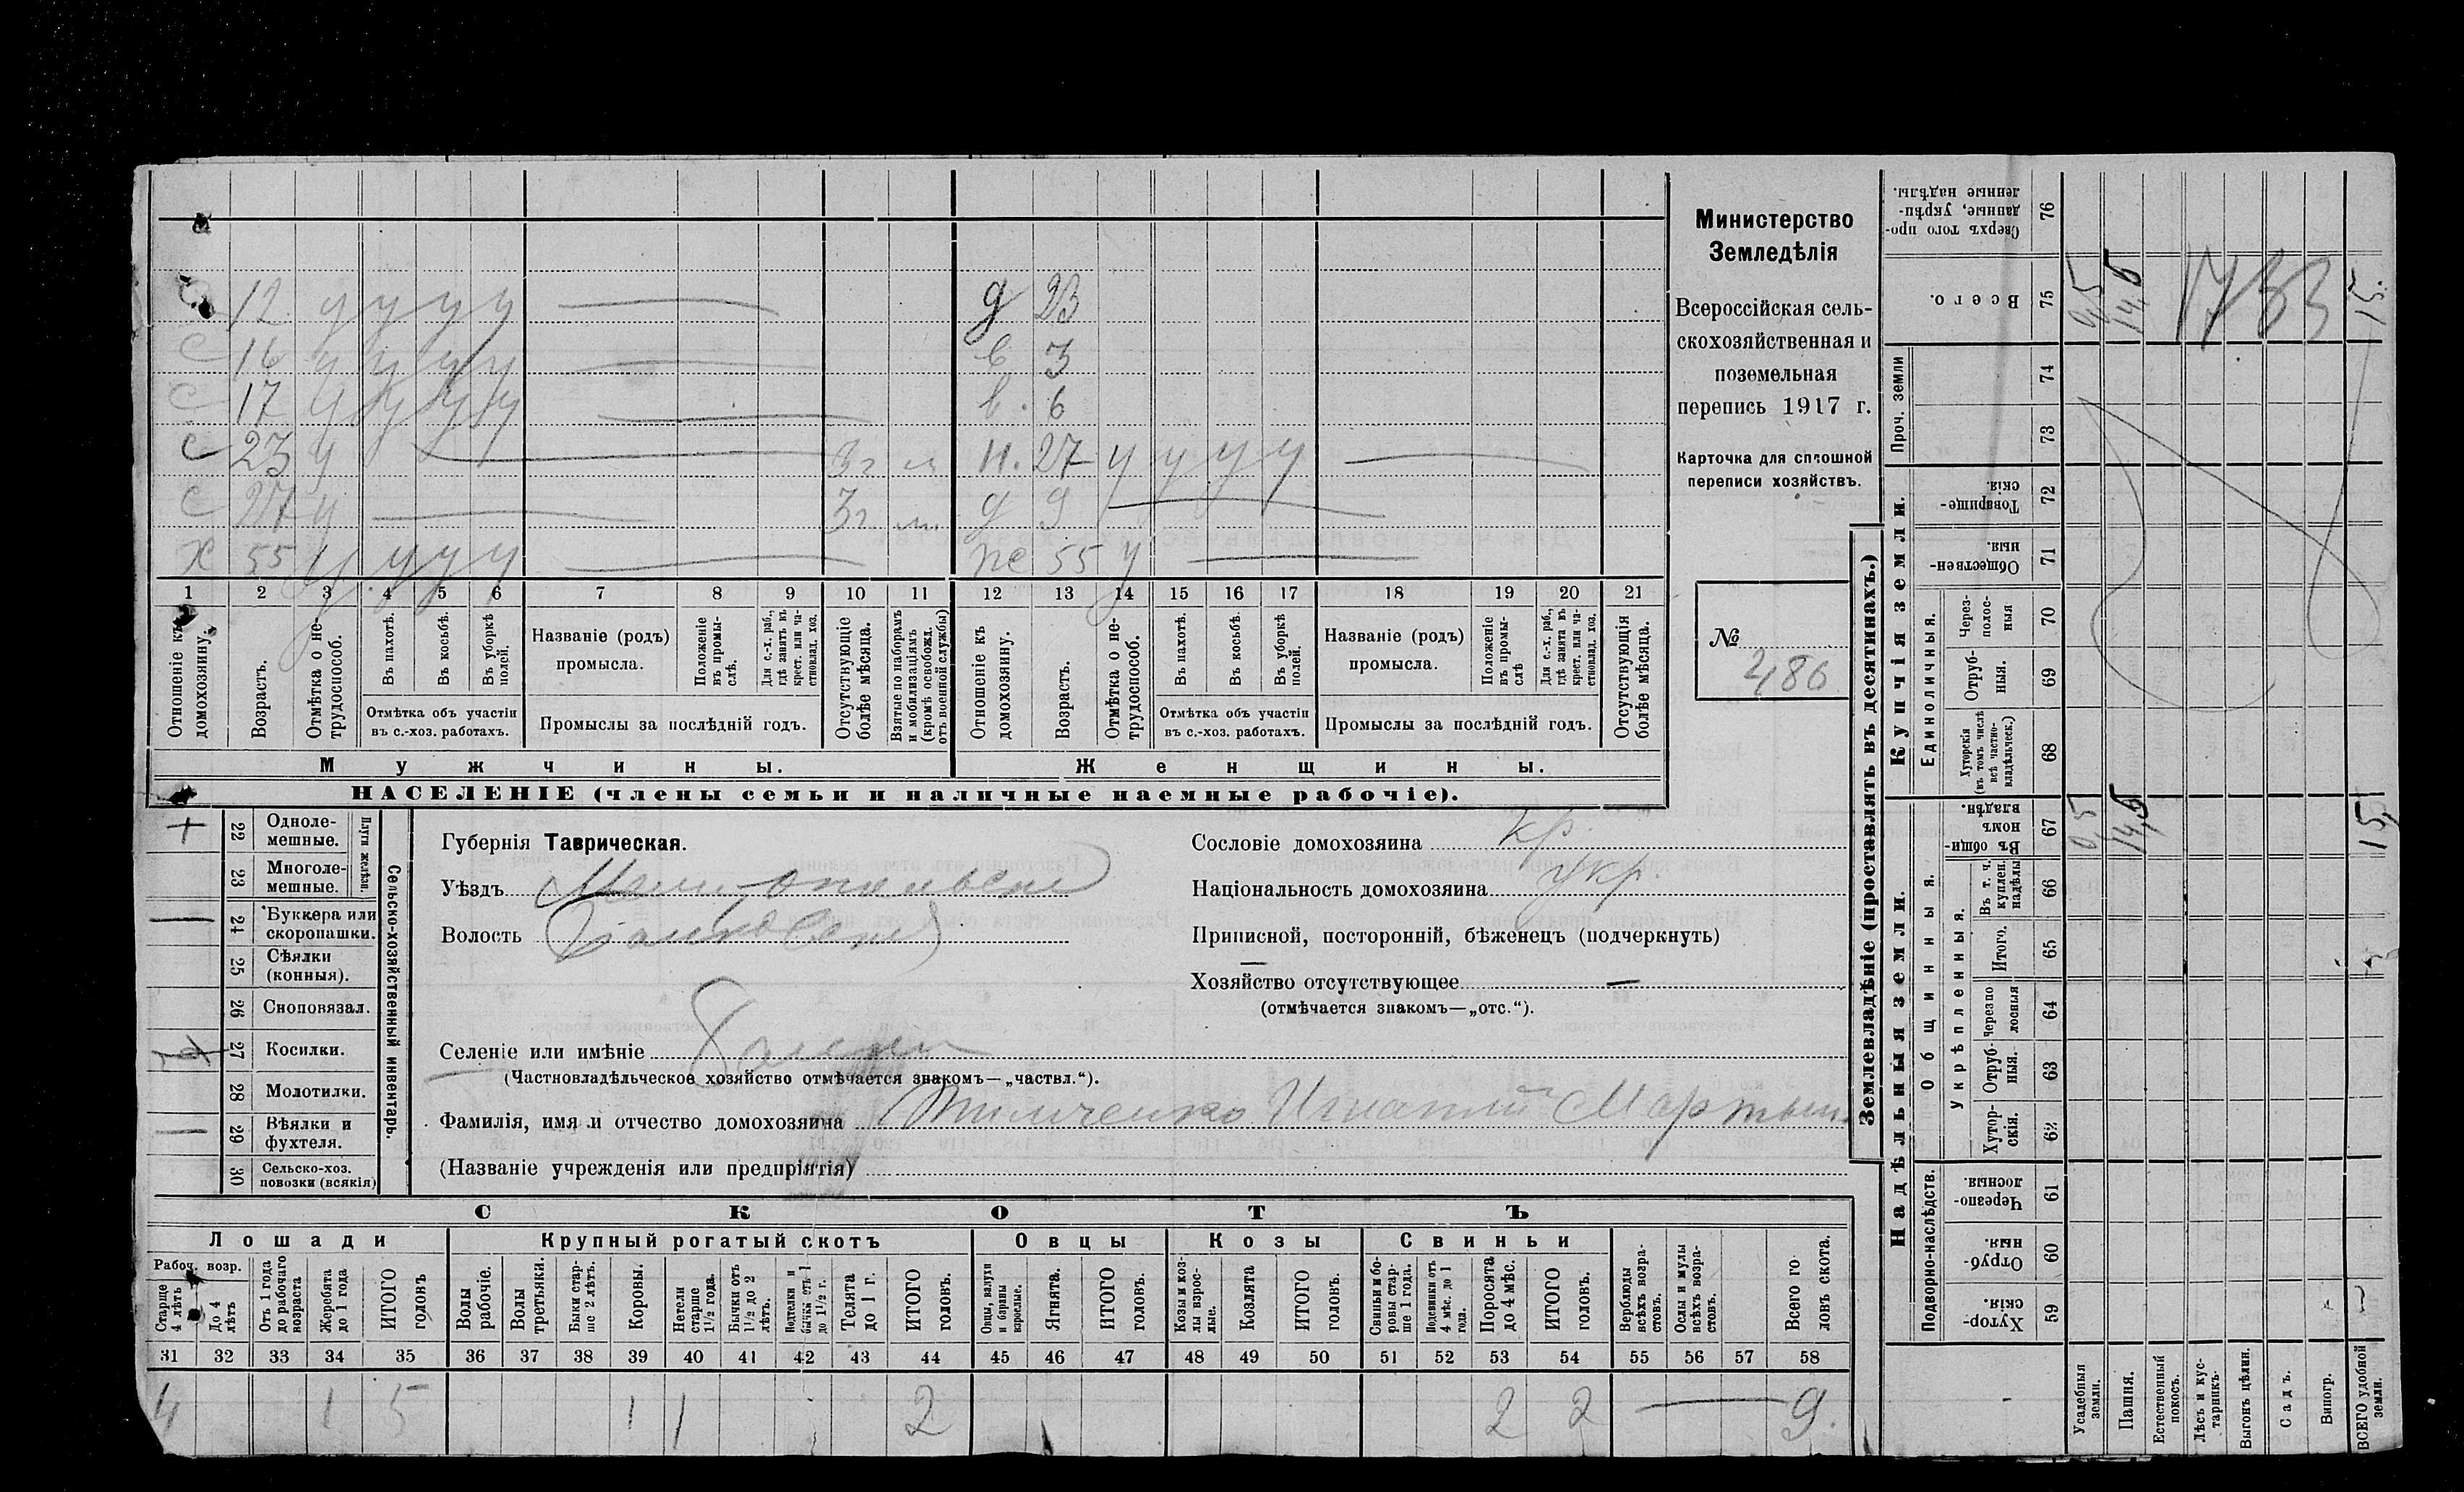 с 12 у у у у
с 16 у у у у
с 17 у у у у
с 23 у 3 г м
с 27 у 3 г м
х 55 у у у у
д 23
в 3
в. 6
н. 27 у у у у
д 9
же 55 у
1 2 3 4 5 6 7 8 9 10 11 12 13 14 15 16 17 18 19 20 21
Отношеніе къ домохозяину.
Возрастъ.
Отмѣтка о нетрудоспособ.
Въ пахотѣ.
Въ косьбѣ.
Въ уборкѣ полей.
Отмѣтка объ участіи въ с.-хоз. работахъ.
Названіе (родъ) промысла.
Положеніе въ промыслѣ.
Для с.-х. раб., гдѣ занятъ въ крест. или частновлад. хоз.
Промыслы за послѣдній годъ.
Отсутствующіе болѣе мѣсяца.
Взятые по наборамъ и мобилизаціямъ (кромѣ освобожд. отъ военной службы)
Отношеніе къ домохозяину.
Возрастъ.
Отмѣтка о нетрудоспособ.
Въ пахотѣ.
Въ косьбѣ.
Въ уборкѣ полей.
Отмѣтка объ участіи въ с.-хоз. работахъ.
Названіе (родъ) промысла.
Положеніе въ промыслѣ
Для с.-х. раб., гдѣ занята въ крест. или частновлад. хоз.
Промыслы за послѣдній годъ.
Отсутствующія болѣе мѣсяца.
Мужчины.
Женщины.
НАСЕЛЕНІЕ (члены семьи и наличные наемные рабочіе).
Министерство
Земледѣлія
Всероссійская сель-
скохозяйственная и
поземельная
перепись 1917 г.
Карточка для сплошной
переписи хозяйствъ.
№
486
22 Одноле-
мешные.
23 Многоле-
мешные.
Плуги желѣзн.
24 Буккера или
скоропашки.
25 Сѣялки
(конныя).
26 Сноповязал.
27 Косилки.
28 Молотилки.
29 Вѣялки и
фухтеля.
30 Сельско-хоз.
повозки (всякія)
Сельско-хозяйственный инвентарь.
Губернія Таврическая.
Уѣздъ
Волость
Селеніе или имѣніе
(Частновладѣльческое хозяйство отмѣчается знакомъ—„частвл.“).
Фамилія, имя и отчество домохозяина Игнатий Мартын
(Названіе учрежденія или предпріятія)
Сословіе домохозяина кр.
Національность домохозяина укр.
Приписной, посторонній, бѣженецъ (подчеркнуть)
Хозяйство отсутствующее —
(отмѣчается знакомъ—„отс.“).
СКОТЪ
Лошади
Крупный рогатый скотъ
Овцы
Козы
Свиньи
Рабоч. возр.
Старше 4 лѣтъ
До 4 лѣтъ
Отъ 1 года до рабочаго возраста
Жеребята до 1 года
ИТОГО головъ
Волы рабочіе.
Волы третьяки.
Быки старше 2 лѣтъ.
Коровы.
Нетели старше 1½ года.
Бычки отъ 1½ до 2 лѣтъ.
Телята до 1 г.
ИТОГО головъ.
Овцы, валухи и бараны взрослые.
Ягнята.
ИТОГО головъ.
Козы и козлы взрослые.
Козлята
ИТОГО головъ.
Свиньи и боровы старше 1 года.
Подсвинки отъ 4 мѣс. до 1 года.
Поросята до 4 мѣс.
ИТОГО головъ.
Верблюды всѣхъ возрастовъ.
Ослы и мулы всѣхъ возрастовъ.
Всего головъ скота.
31 32 33 34 35 36 37 38 39 40 41 42 43 44 45 46 47 48 49 50 51 52 53 54 55 56 57 58
4 1 5 1 1 2 2 2 — 9.
Землевладѣніе (проставлять въ десятинахъ.)
Надѣльныя земли.
Купчія земли.
Проч. земли
Подворно-наслѣдств.
Общинныя.
Укрѣпленныя.
Единоличныя.
Сверхъ того проданные, укрѣпленные надѣлы. 76
Всего. 75
74
73
Товарищескія. 72
Общественныя. 71
Черезполосныя 70
Отрубныя. 69
Хуторскія (въ томъ числѣ всѣ частновладѣльческ.) 68
Въ общинномъ владѣн. 67
Въ т. ч. куплен. надѣлы 66
Итого. 65
Черезполосныя 64
Отрубныя. 63
Хуторскія. 62
Черезполосныя. 61
Отрубныя. 60
Хуторскія. 59
Усадебныя земли.
Пашня.
Естественный покосъ.
Лѣсъ и кустарникъ.
Выгонъ цѣлин.
Садъ.
Виногр.
ВСЕГО удобной земли.
0,5
14,5
1733
15.
0,5
14,5
15,